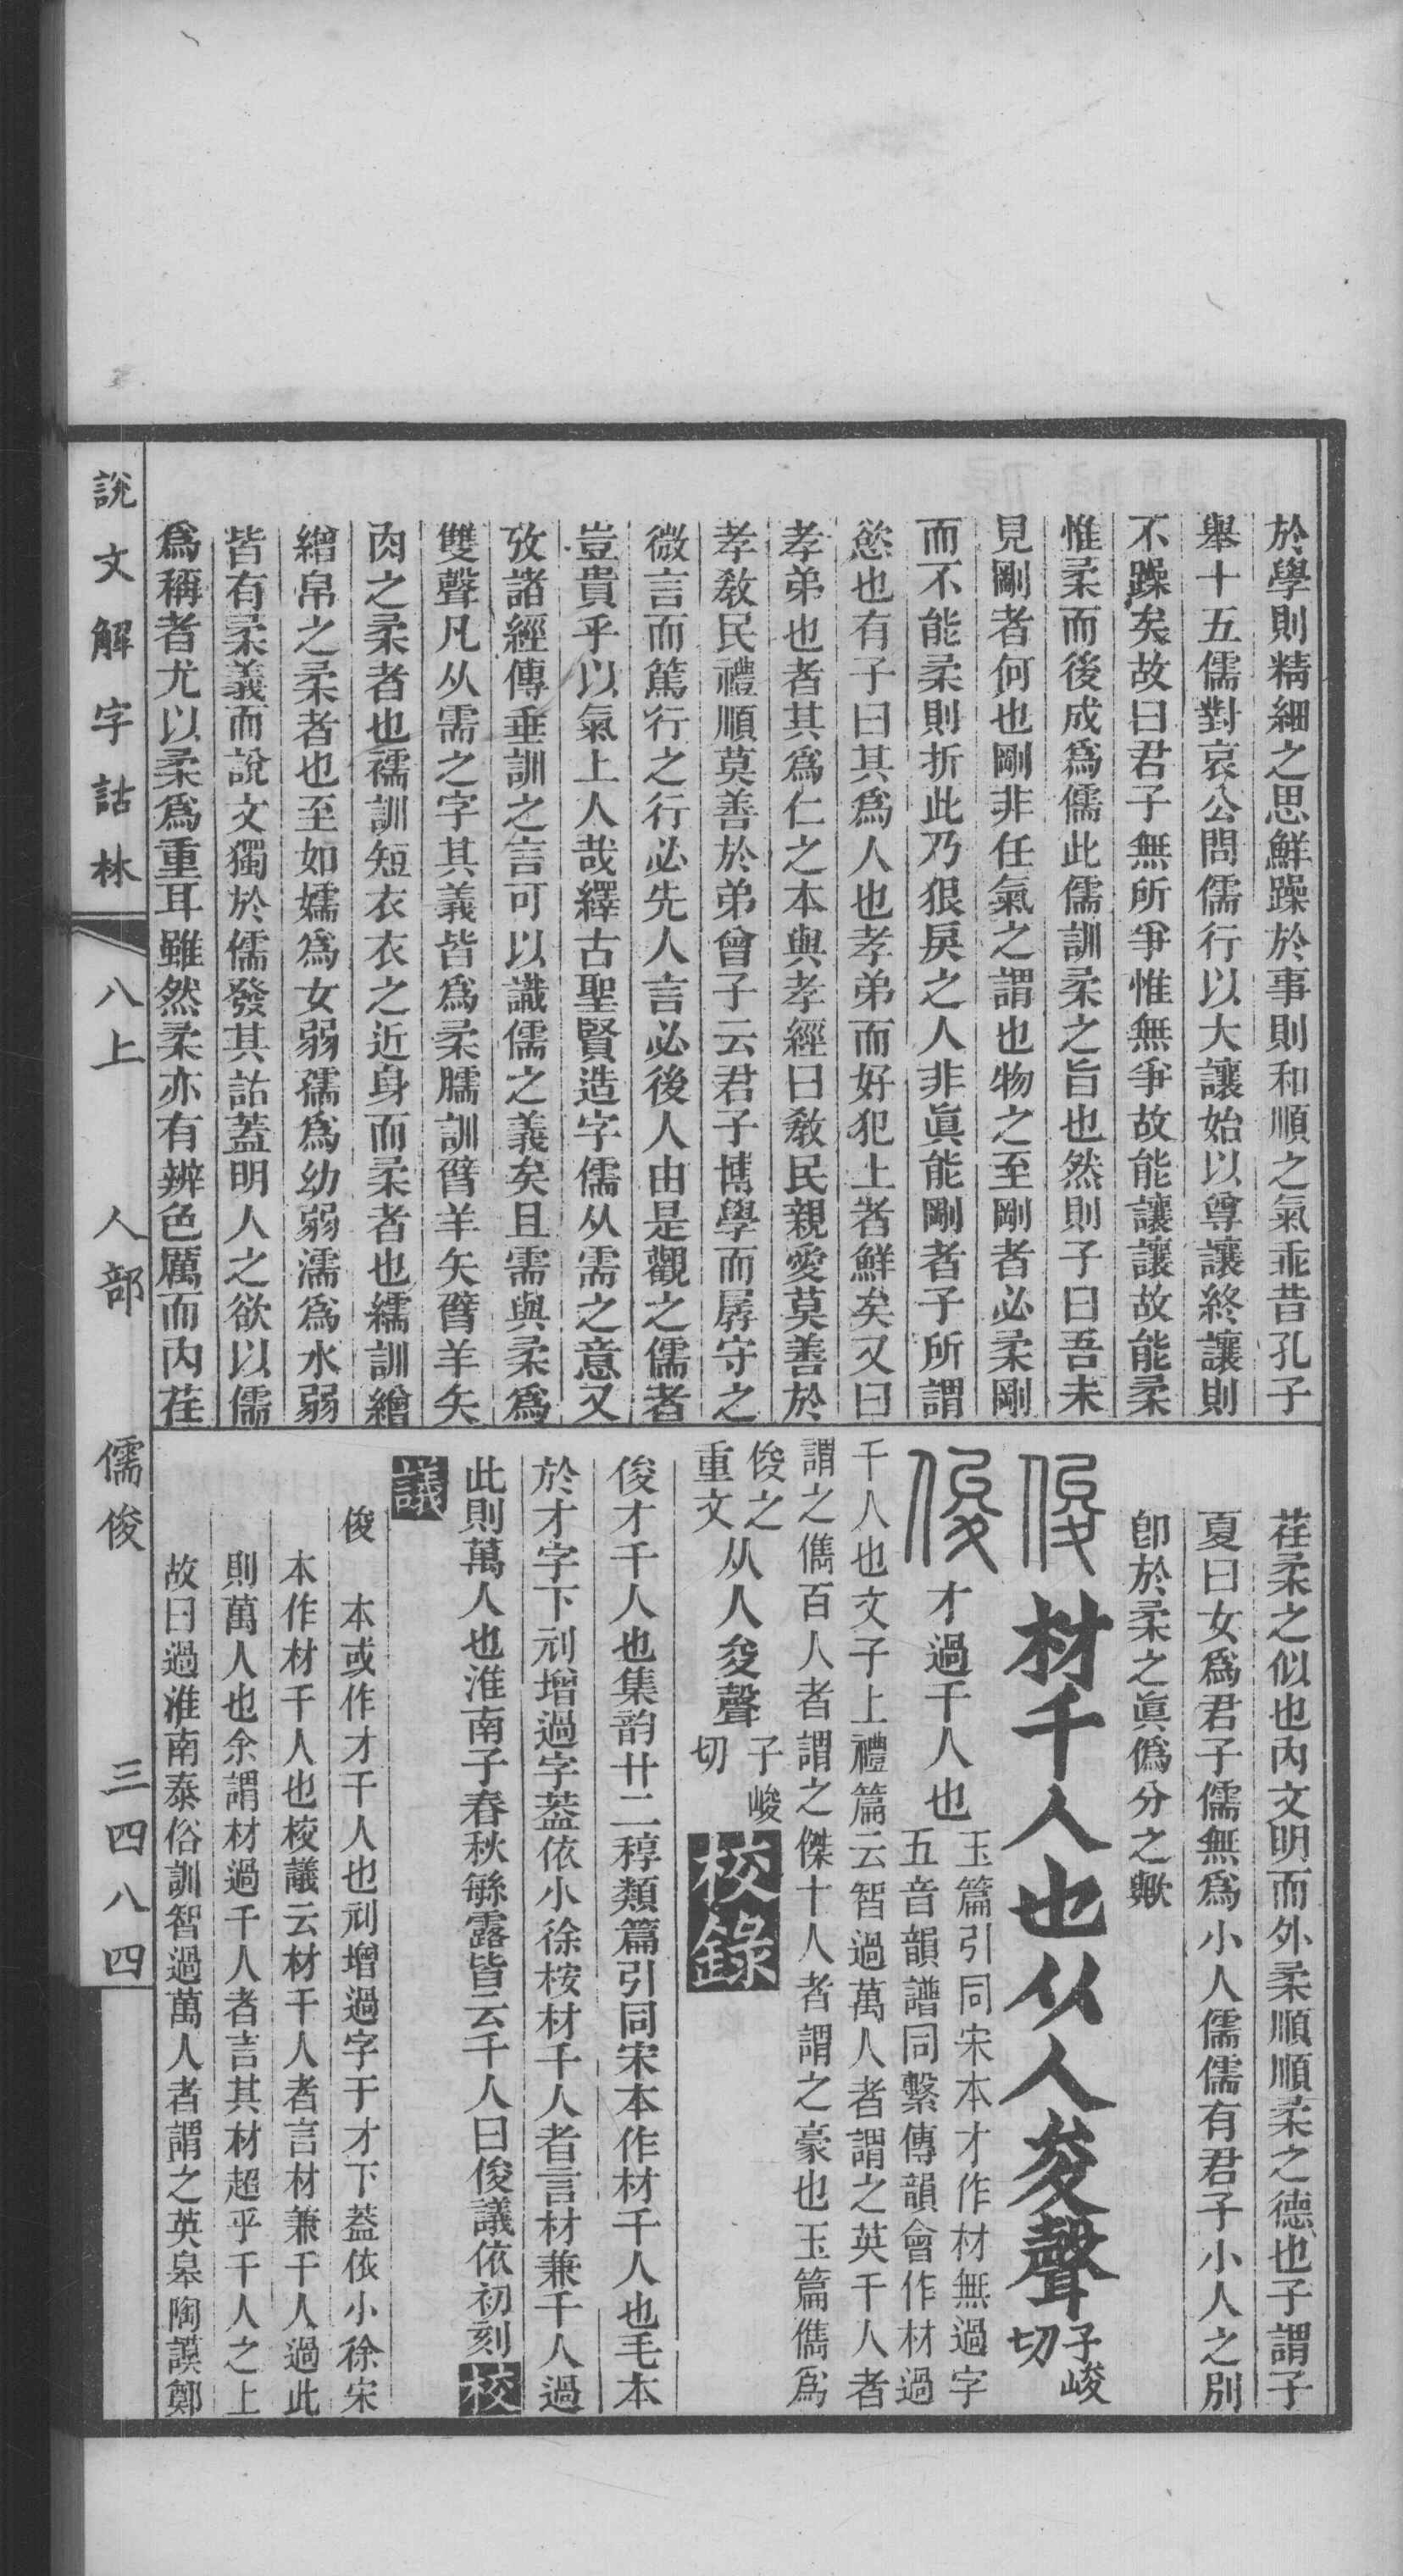 於學則精細之思鮮躁於事則和順之氣乖昔孔子
舉十五儒對哀公問儒行以大讓始以尊讓終讓則
不躁矣故曰君子無所爭惟無爭故能讓讓故能柔
惟柔而後成爲儒此儒訓柔之旨也然則子曰吾未
見剛者何也剛非任氣之謂也物之至剛者必柔剛
而不能柔則折此乃狠戾之人非眞能剛者子所謂
慾也有子曰其爲人也孝弟而好犯上者鮮矣又曰
孝弟也者其爲仁之本與孝經曰敎民親愛莫善於
孝敎民禮順莫善於弟曾子云君子博學而孱守之
微言而篤行之行必先人言必後人由是觀之儒者
豈貴乎以氣上人哉繹古聖賢造字儒从需之意又
攷諸經傳垂訓之言可以識儒之義矣且需與柔爲
雙聲凡从需之字其義皆爲柔臑訓臂羊矢臂羊矢
肉之柔者也襦訓短衣衣之近身而柔者也繻訓繒
繒帛之柔者也至如嬬爲女弱孺爲幼弱濡爲水弱
皆有柔義而說文獨於儒發其詁蓋明人之欲以儒
爲稱者尤以柔爲重耳雖然柔亦有辨色厲而內荏
荏柔之似也內文明而外柔順順柔之德也子謂子
夏曰女爲君子儒無爲小人儒儒有君子小人之別
卽於柔之眞僞分之歟
俊 材千人也从人夋聲 子峻切
俊 才過千人也 玉篇引同宋本才作材無過字
五音韻譜同繫傳韻會作材過
千人也文子上禮篇云智過萬人者謂之英千人者
謂之儁百人者謂之傑十人者謂之豪也玉篇儁爲
俊之重文 从人夋聲 子峻切 校錄
俊才千人也集韵廿二稕類篇引同宋本作材千人也毛本
於才字下刓增過字葢依小徐桉材千人者言材兼千人過
此則萬人也淮南子春秋繇露皆云千人曰俊議依初刻 校
議
俊 本或作才千人也刓增過字于才下葢依小徐宋
本作材千人也校議云材千人者言材兼千人過此
則萬人也余謂材過千人者言其材超乎千人之上
故曰過淮南泰俗訓智過萬人者謂之英皋陶謨鄭
說文解字詁林 八上 人部 儒俊 三四八四